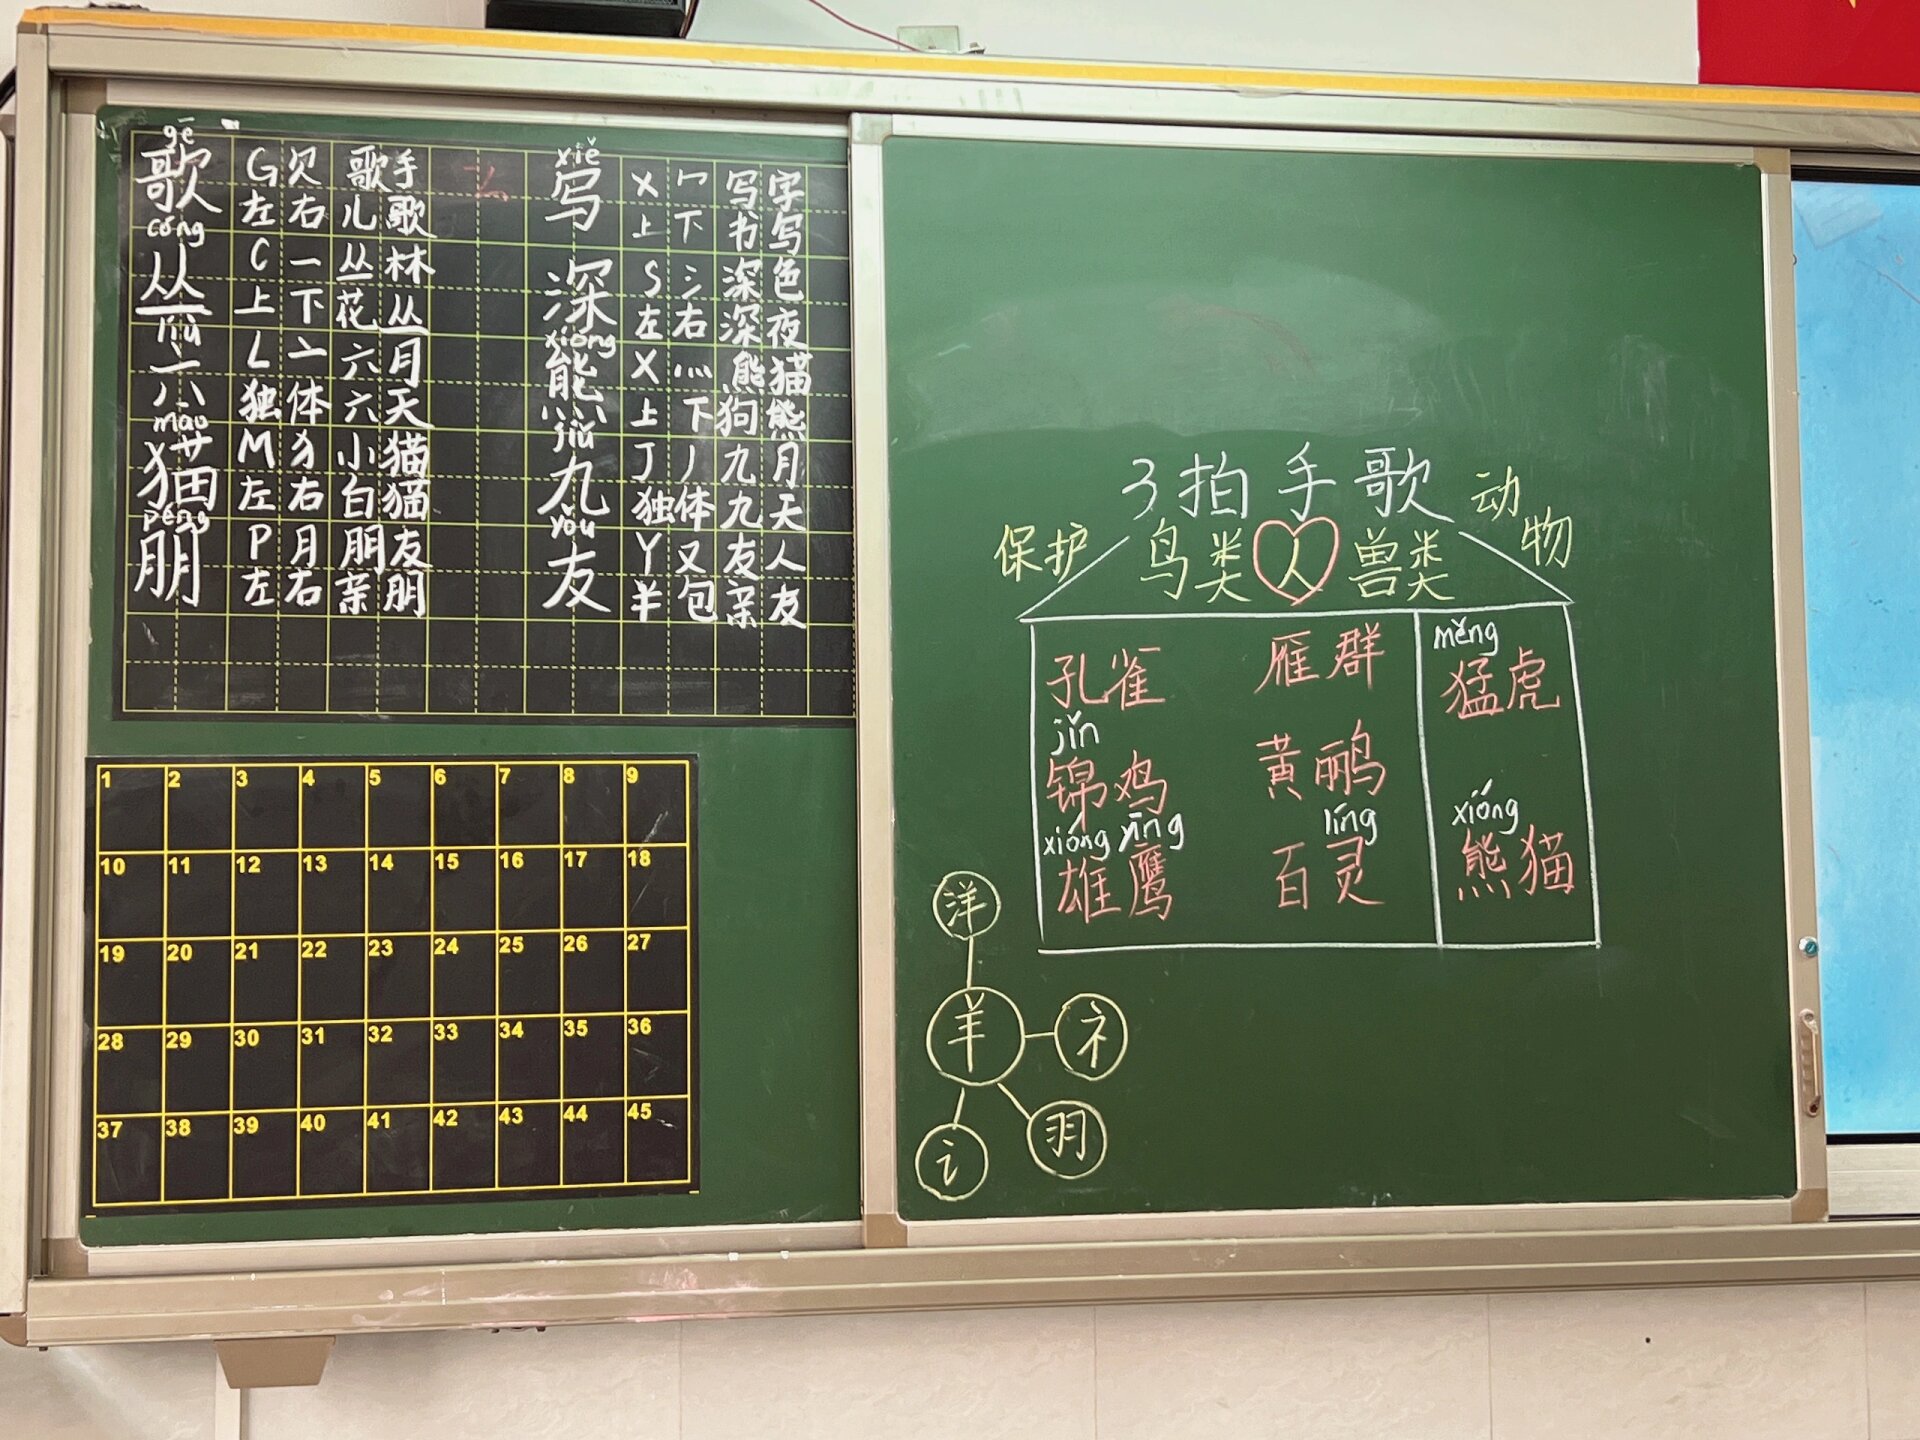 gē
歌 G 欠 歌手
左 右 儿歌
cóng
丛 C 一 丛林
上 下 花丛
liù
六 L 亠 六月
独 体 六天
māo
猫 M 犭 小猫
左 右 白猫
péng
朋 P 月 朋友
左 右 亲朋
xiě
写 X 冖 写字
上 下 书写
深 S 氵 深色
左 右 深夜
xióng
熊 X 灬 熊猫
上 下 狗熊
jiǔ
九 J 丿 九月
独 体 九天
yǒu
友 Y 又 友人
半 包 亲友
1 2 3 4 5 6 7 8 9
10 11 12 13 14 15 16 17 18
19 20 21 22 23 24 25 26 27
28 29 30 31 32 33 34 35 36
37 38 39 40 41 42 43 44 45
3 拍手歌
保护 鸟类 人 兽类 动物
孔雀 雁群
jǐn
锦鸡 黄鹂
xióng yīng líng
雄鹰 百灵
měng
猛虎
xióng
熊猫
洋
羊 礻
讠 羽